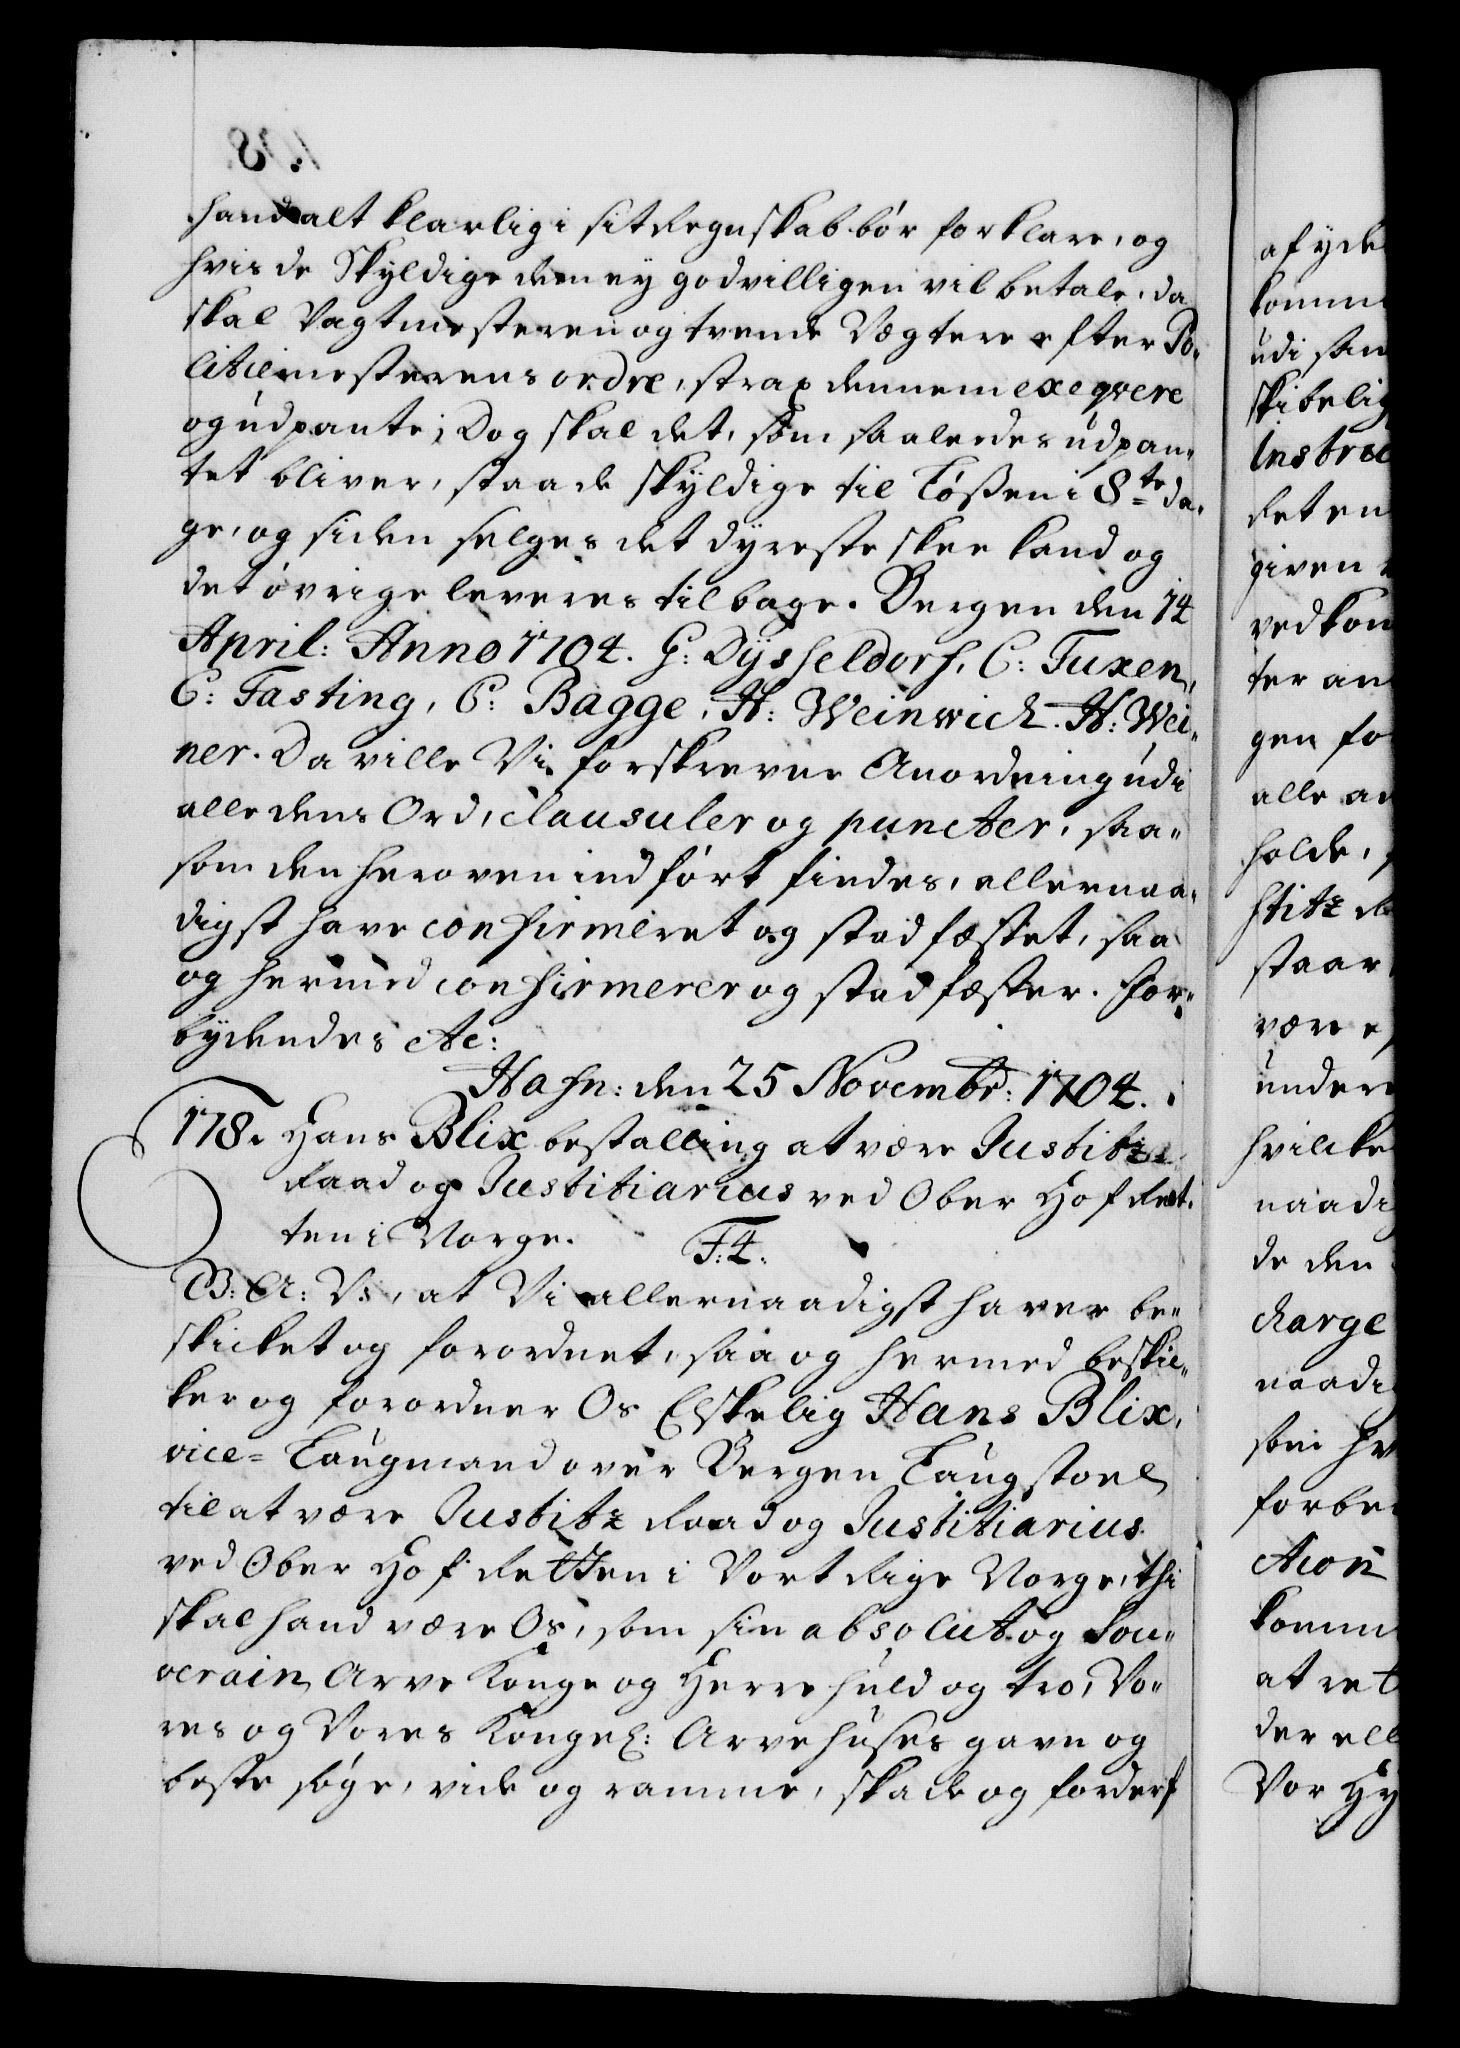 hand alt klarlig i sit Regnskab bör forklare, og
hvis de Skyldige dem ey godvilligen vil betale, da
skal Vagtmesteren og trende Vægtere efter Po„
litiemesterens ordre, strax dennem exeqvere
og udpante; Dog skal det, som saaledes udpan„
tet bliver, staa de skyldige til Løssen i 8te da„
ge, og siden selges det dyreste skee kand og
det övrige leveres tilbage. Bergen den 14
April: Anno 1704. G: Dysseldorf, C: Tuxen,
C: Fasting, C: Bagge, H: Weinwich. H: Wei„
ner. Da ville Vi forskrevne Anordning udi
alle dens Ord, clausuler og puncter, saa„
som den heroven indfört findes, allernaa„
digst have confirmeret og stadfæstet, saa
og hermed confirmerer og stadfæster. For„
bydendes etc:
Hafn: den 25 Novembr: 1704.
178. Hans Blix bestalling at være Justitz
Raad og Justitiarius ved Ober Hof Ret„
ten i Norge. F:4.
G: A: V:, at Vi allernaadigst haver be„
skicket og forordnet, saa og hermed beskic„
ker og forordner Os Elskelig Hans Blix,
vice= Laugmand over Bergen Laugstoel
til at være Justitz Raad og Justitiarius
ved Ober Hof Retten i Vort Rige Norge, thi
skal hand være Os, som sin absolut og Sou„
verain Arve Konge og Herre huld og tro, Vo„
res og Vores Kongel: Arvehuses gavn og
beste søge, vide og ramme, skade og forderf